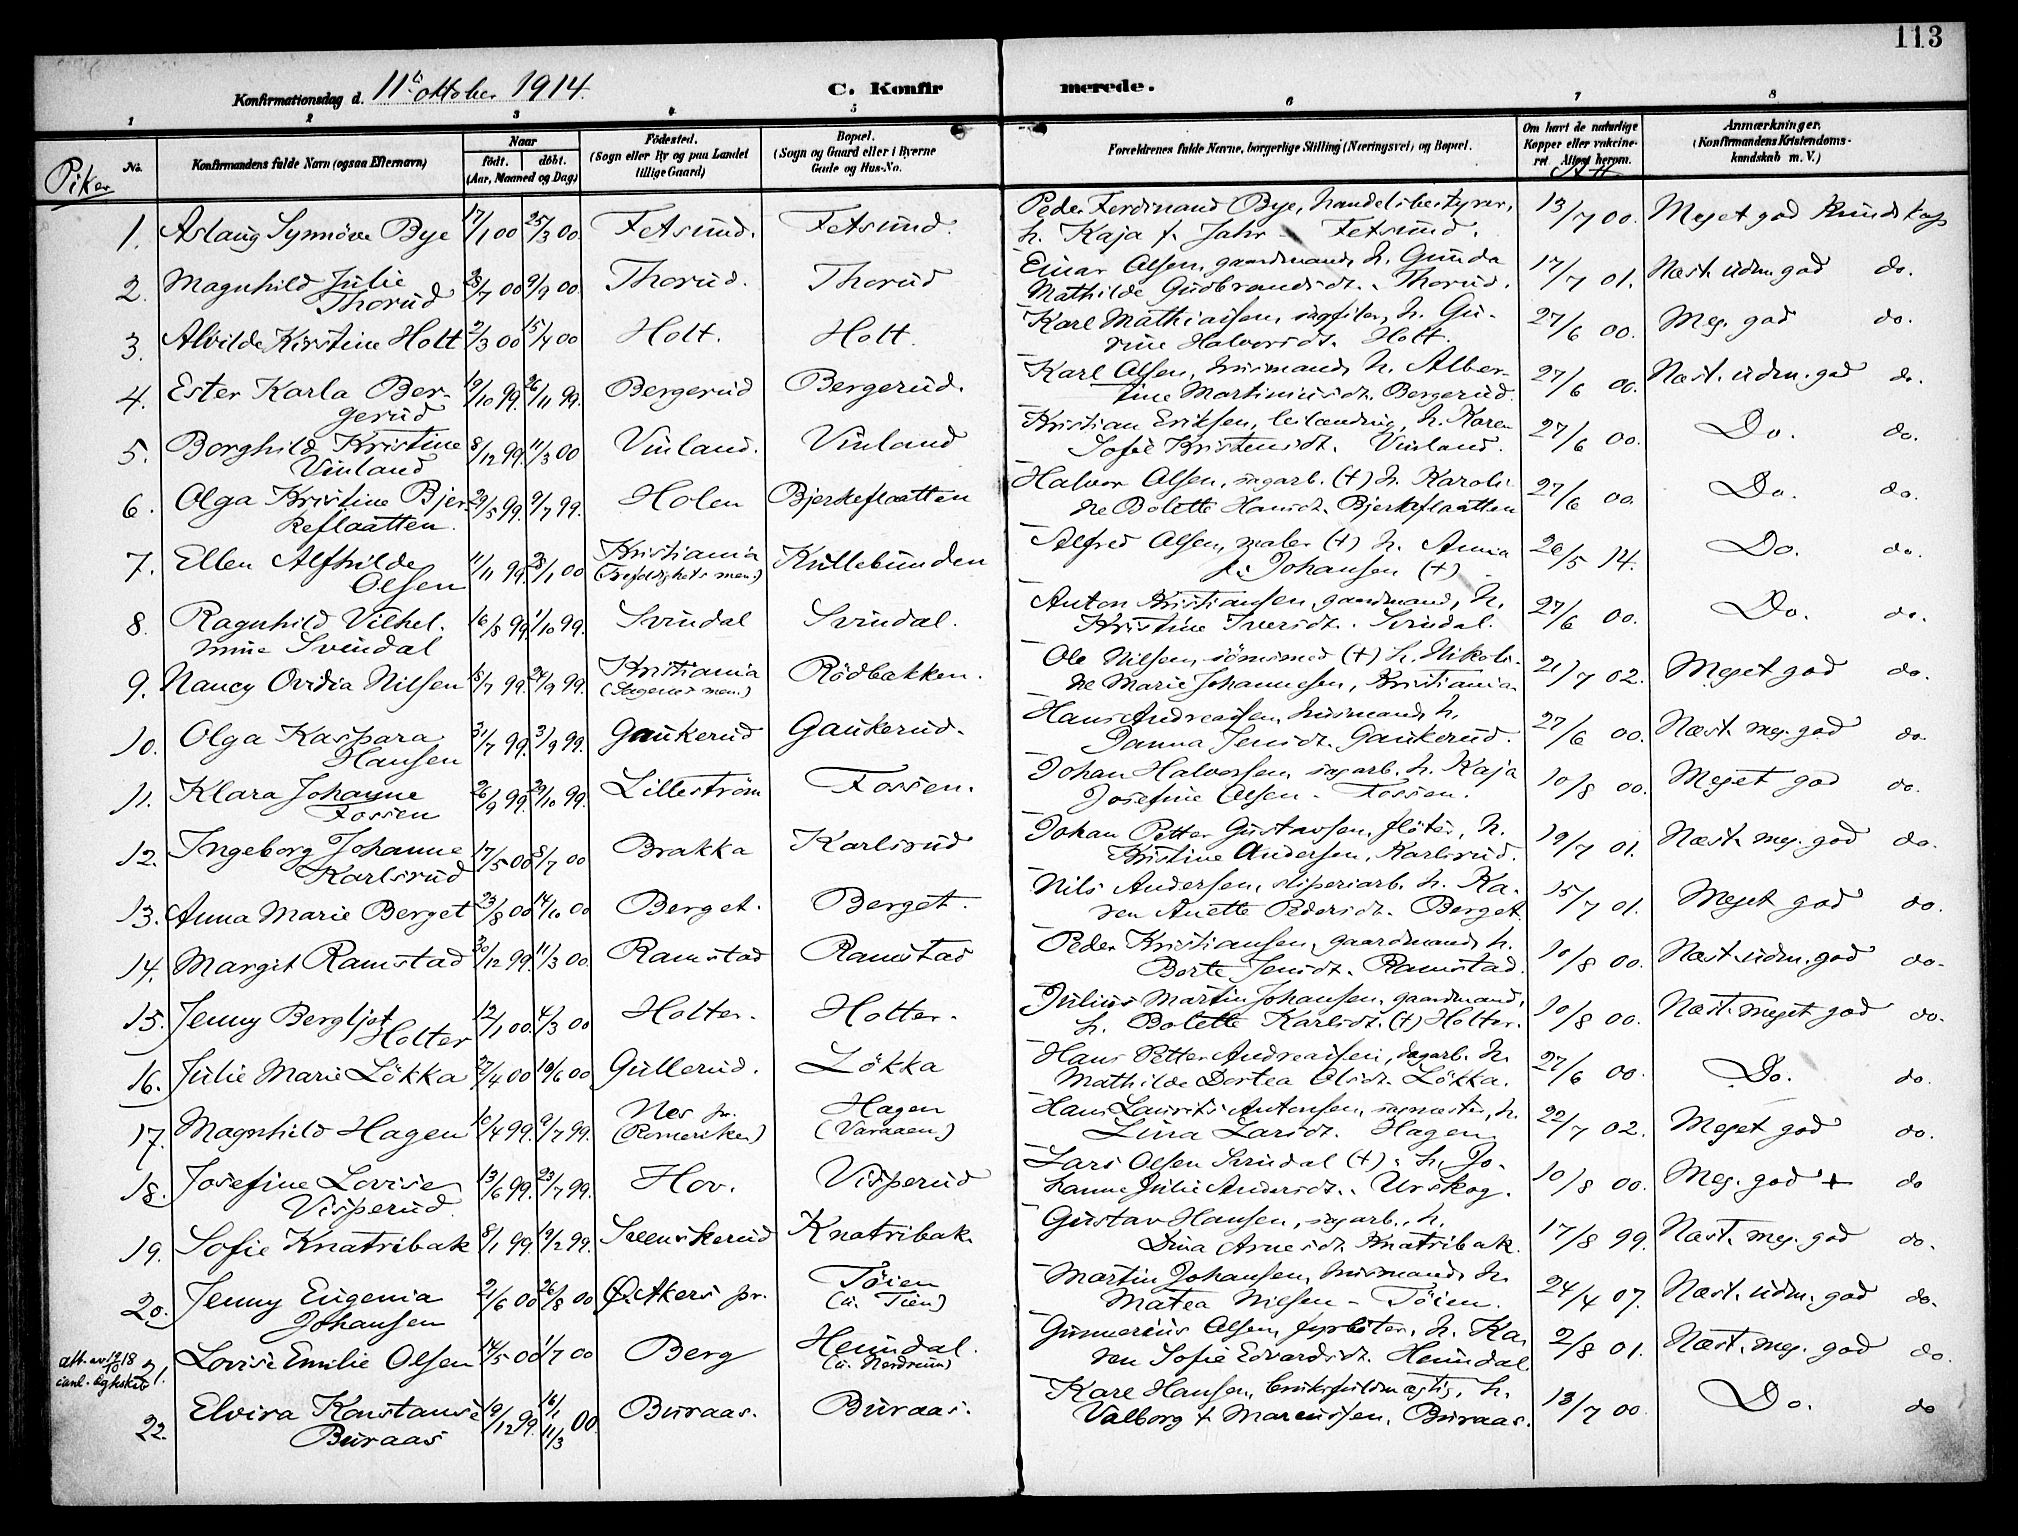 113
Konfirmationsdag d. 11te oktober 1914.
C. Konfirmerede.
1 2 3 4 5 6 7 8
No.
Konfirmandens fulde Navn (ogsaa Efternavn)
Naar
født. døbt.
(Aar, Maaned og Dag)
Fødested.
(Sogn eller By og paa Landet
tillige Gaard)
Bopæl.
(Sogn og Gaard eller i Byerne
Gade og Hus-No.
Forældrenes fulde Navne, borgerlige Stilling (Næringsvei) og Bopæl.
Om havt de naturlige
Kopper eller vakcine-
ret. Attest herom.
Anmærkninger.
(Konfirmandens Kristendoms-
kundskab m. V.)
Piker
1. Aslaug Synnöve Bye 17/1 00 25/3 00. Fetsund. Fetsund. Peder Ferdinand Bye, handelsbestyrer, 13/7 00. Meget god Kundskap
h. Kaja f. Jahr - Fetsund.
2. Magnhild Julie 28/7 00 9/9 00. Thorud. Thorud Einar Olsen, gaardmand, h. Gunda 17/7 01. Næst. udm. god do.
Thorud Mathilde Gudbrandsdt. Thorud.
3. Alvilde Kirstine Holt 2/3 00 15/4 00 Holt. Holt. Karl Mathiassen, sagfiler, h. Gu- 27/6 00. Meg. god do.
rine Halvorsdt. Holt.
4. Ester Karla Ber- 19/10 99. 26/11 99. Bergerud Bergerud. Karl Olsen, husmand, h. Alber- 27/6 00. Næst. udm. god do.
gerud tine Martinusdt. Bergerud.
5. Borghild Kristine 8/12 99. 11/3 00 Vinland. Vinland Kristian Eriksen, leilænding, h. Karen 27/6 00. Do. do.
Vinland Sofie Kristensdt. Vinland.
6. Olga Kristine Bjer- 29/5 99. 9/7 99. Holen Bjerkeflaatten Halvor Olsen, sagarb. (+) h. Karoli- 27/6 00. Do. do.
keflaatten. ne Bolette Hansdt. Bjerkeflaatten
7. Ellen Alfhilde 11/11 99. 28/1 00 Kristiania Kullebunden Alfred Olsen, maler (+) h. Anna 26/5 14. Do. do.
Olsen (Trefoldighets men.) f. Johansen (+)
8. Ragnhild Vilhel- 16/8 99. 1/10 99. Svindal Svindal. Anton Kristiansen, gaardmand, h. 27/6 00. Do. do.
mine Svindal Kristine Iversdt. Svindal.
9. Nancy Ovidia Nilsen 15/7 99. 24/9 99. Kristiania Rödbakken. Ole Nilsen, sömsmed (+) h. Nikoli- 21/7 02. Meget god do.
(Sagenes men.) ne Marie Johannesen, Kristiania.
10. Olga Kaspara 31/7 99. 3/9 99. Gaukerud Gaukerud. Hans Andreassen, husmand, h. 27/6 00. Næst. meg. god do.
Hansen Danna Jensdt. Gaukerud.
11. Klara Johanne 26/9 99. 29/10 99. Lilleström Fossen. Johan Halvorsen, sagarb. h. Kaja 10/8 00. Meget god do.
Fossen Josefine Olsen - Fossen.
12. Ingeborg Johanne 17/5 00 8/7 00 Brakka Karlsrud Johan Petter Gustavsen, flöter, h. 19/7 01. Næst. meg. god do.
Karlsrud Kristine Andersen, Karlsrud.
13. Anna Marie Berget 23/8 00 14/10 00 Berget. Berget. Nils Andersen, sliperiarb. h. Ka- 15/7 01. Meget god do.
ren Anette Pedersdt. Berget.
14. Margit Ramstad 30/12 99. 11/3 00. Ramstad Ramstad Peder Kristiansen, gaardmand, h. 10/8 00. Næst. udm. god do.
Berte Jensdt. Ramstad.
15. Jenny Bergljot 12/1 00. 4/3 00 Holter. Holter. Julius Martin Johansen, gaardmand, 10/8 00. Næst. meget god do.
Holter h. Bolette Karlsdt. (+) Holter.
16. Julie Marie Lökka 27/4 00 10/6 00 Gullerud. Lökka Hans Petter Andreassen, dagarb. h. 27/6 00. Do. do.
Mathilde Dortea Olsdt. Lökka.
17. Magnhild Hagen 10/4 99. 9/7 99. Nes pr. Hagen Hans Laurits Antonsen, sagmester, h. 22/7 02. Meget god do.
(Romeriken) (Varaaen) Lina Larsdt. Hagen.
18. Josefine Lovise 13/6 99. 23/7 99. Hov. Visperud Lars Olsen Svindal (+), h. Jo- 10/8 00. Meg. god + do
Visperud. hanne Julie Andersdt. Urskog.
19. Sofie Knatribak 8/1 99. 19/2 99. Svenskerud Knatribak. Gustav Hansen, sagarb., h. 17/8 99. Næst. meg. god do.
Dina Arnesdt. Knatribak.
20. Jenny Eugenia 2/6 00 26/8 00 Ö. Akers pr. Töien Martin Johansen, husmand, h. 24/4 07. Næst. udm. god do.
Johansen (u. Tien) Matea Nilsen - Töien.
att. av 12/10 18 21. Lovise Emilie Olsen 14/5 00 1/7 00 Berg Heimdal. Gunnerius Olsen, fyrböter, h. Ka- 2/8 01. Næst. meg. god do.
i anl. egteskab (u. Nordrum) ren Sofie Edvardsdt. Heimdal
22. Elvira Konstanse 19/12 99. 16/1 11/3 00. Buraas. Buraas. Karl Hansen, bruksfuldmægtig, h. 13/7 00. Do. do
Buraas Valborg f. Marcussen. Buraas.